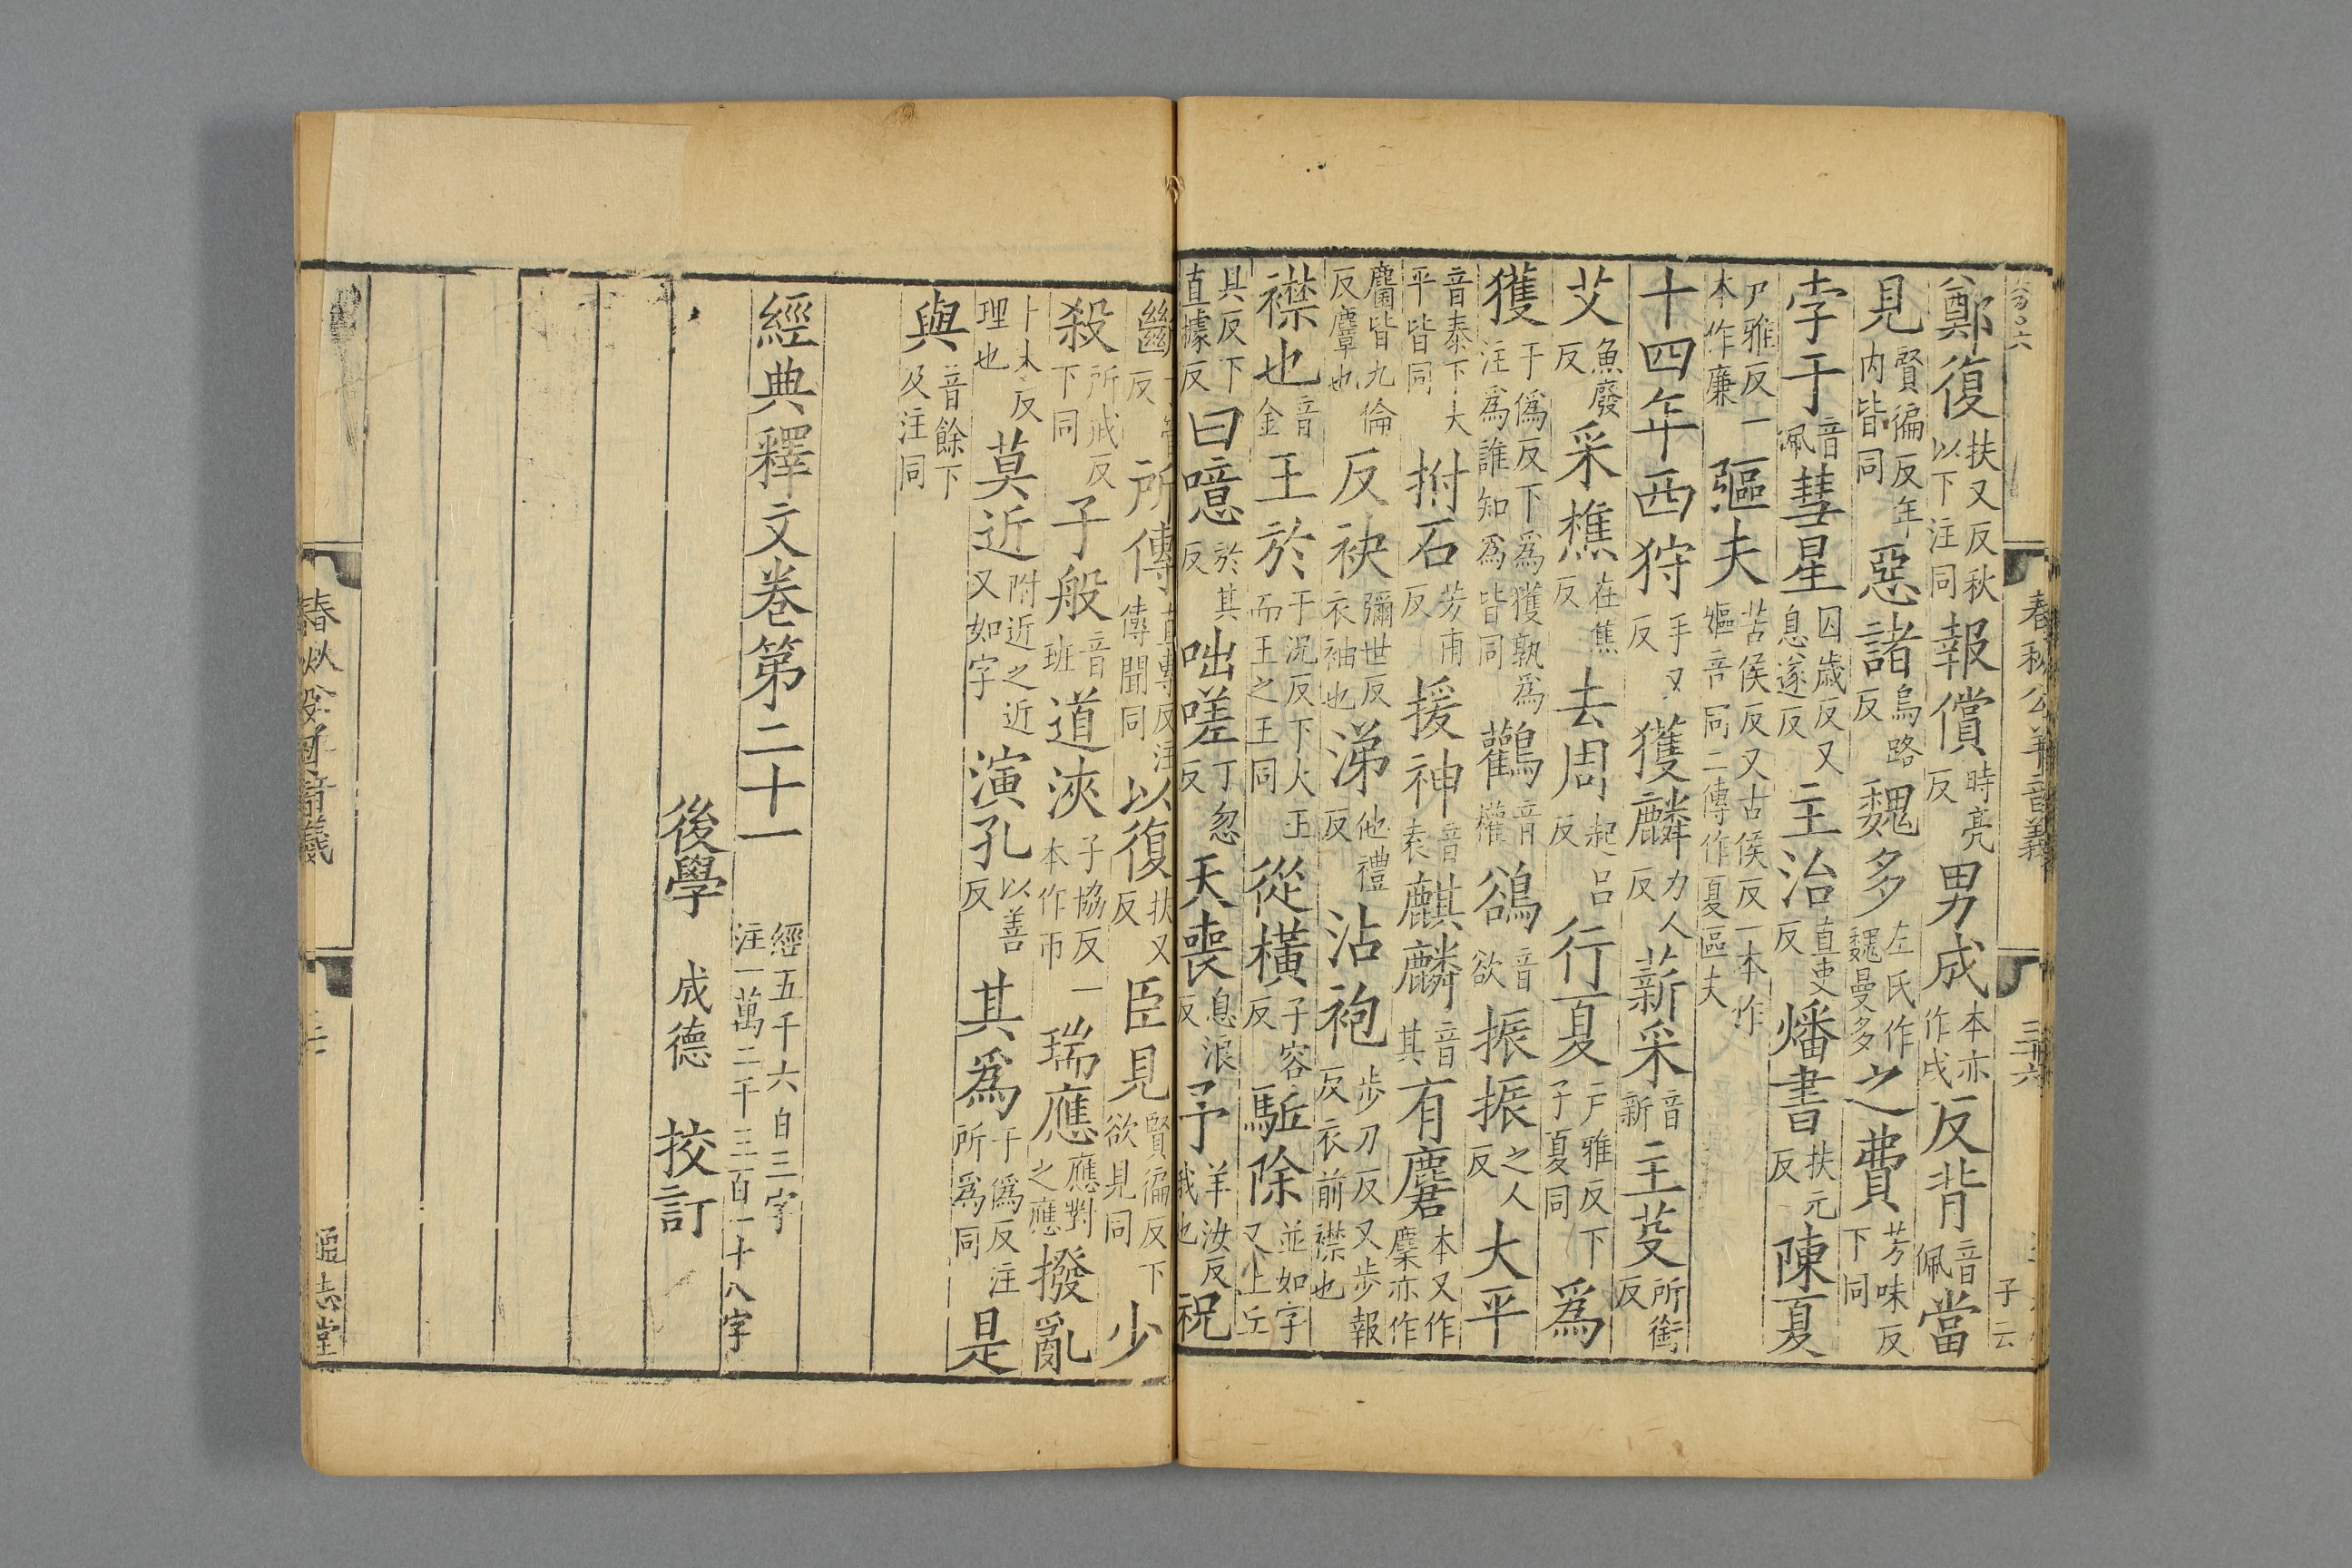 春秋公羊音義
三十六
鄭復扶又反秋以下注同報償時亮反男戍本亦作戌反背音佩當
見賢徧反年内皆同惡諸烏路反魏多左氏作魏曼多之費芳味反下同
孛于音佩彗星囚歲反又息遂反主治直吏反燔書扶元反陳夏
戸雅反一本作廉彄夫苦侯反又古侯反一本作嫗音同二傳作夏區夫
十四年西狩手又反獲麟力人反薪采音新主芟所銜反
艾魚廢反采樵在焦反去周起吕反行夏戸雅反下子夏同爲
獲于僞反下爲獲孰爲注爲誰知爲皆同鸛音權鵒音欲振振之人反大平
音泰下大平皆同拊石芳甫反援神音袁麒麟音其有麏本又作麇亦作
麕皆九倫反麞也反袂彌世反衣袖也涕他禮反沾袍步刀反又步報反衣前襟也
襟也音金王於于況反下大王而王之王同從橫子容反駈除並如字又上丘
具反下直據反曰噫於其反咄嗟丁忽反天喪息浪反予羊汝反我也祝
斷丁管反所傳直專反注傳聞同以復扶又反臣見賢徧反下欲見同少
殺所戒反下同子般音班道浹子協反一本作帀瑞應應對之應撥亂
卜末反理也莫近附近之近又如字演孔以善反其爲于僞反注所爲同是
與音餘下及注同
經典釋文卷第二十一
經五千六百三字
注一萬二千三百一十八字
後學 成德 挍訂
春秋公羊音義
通志堂